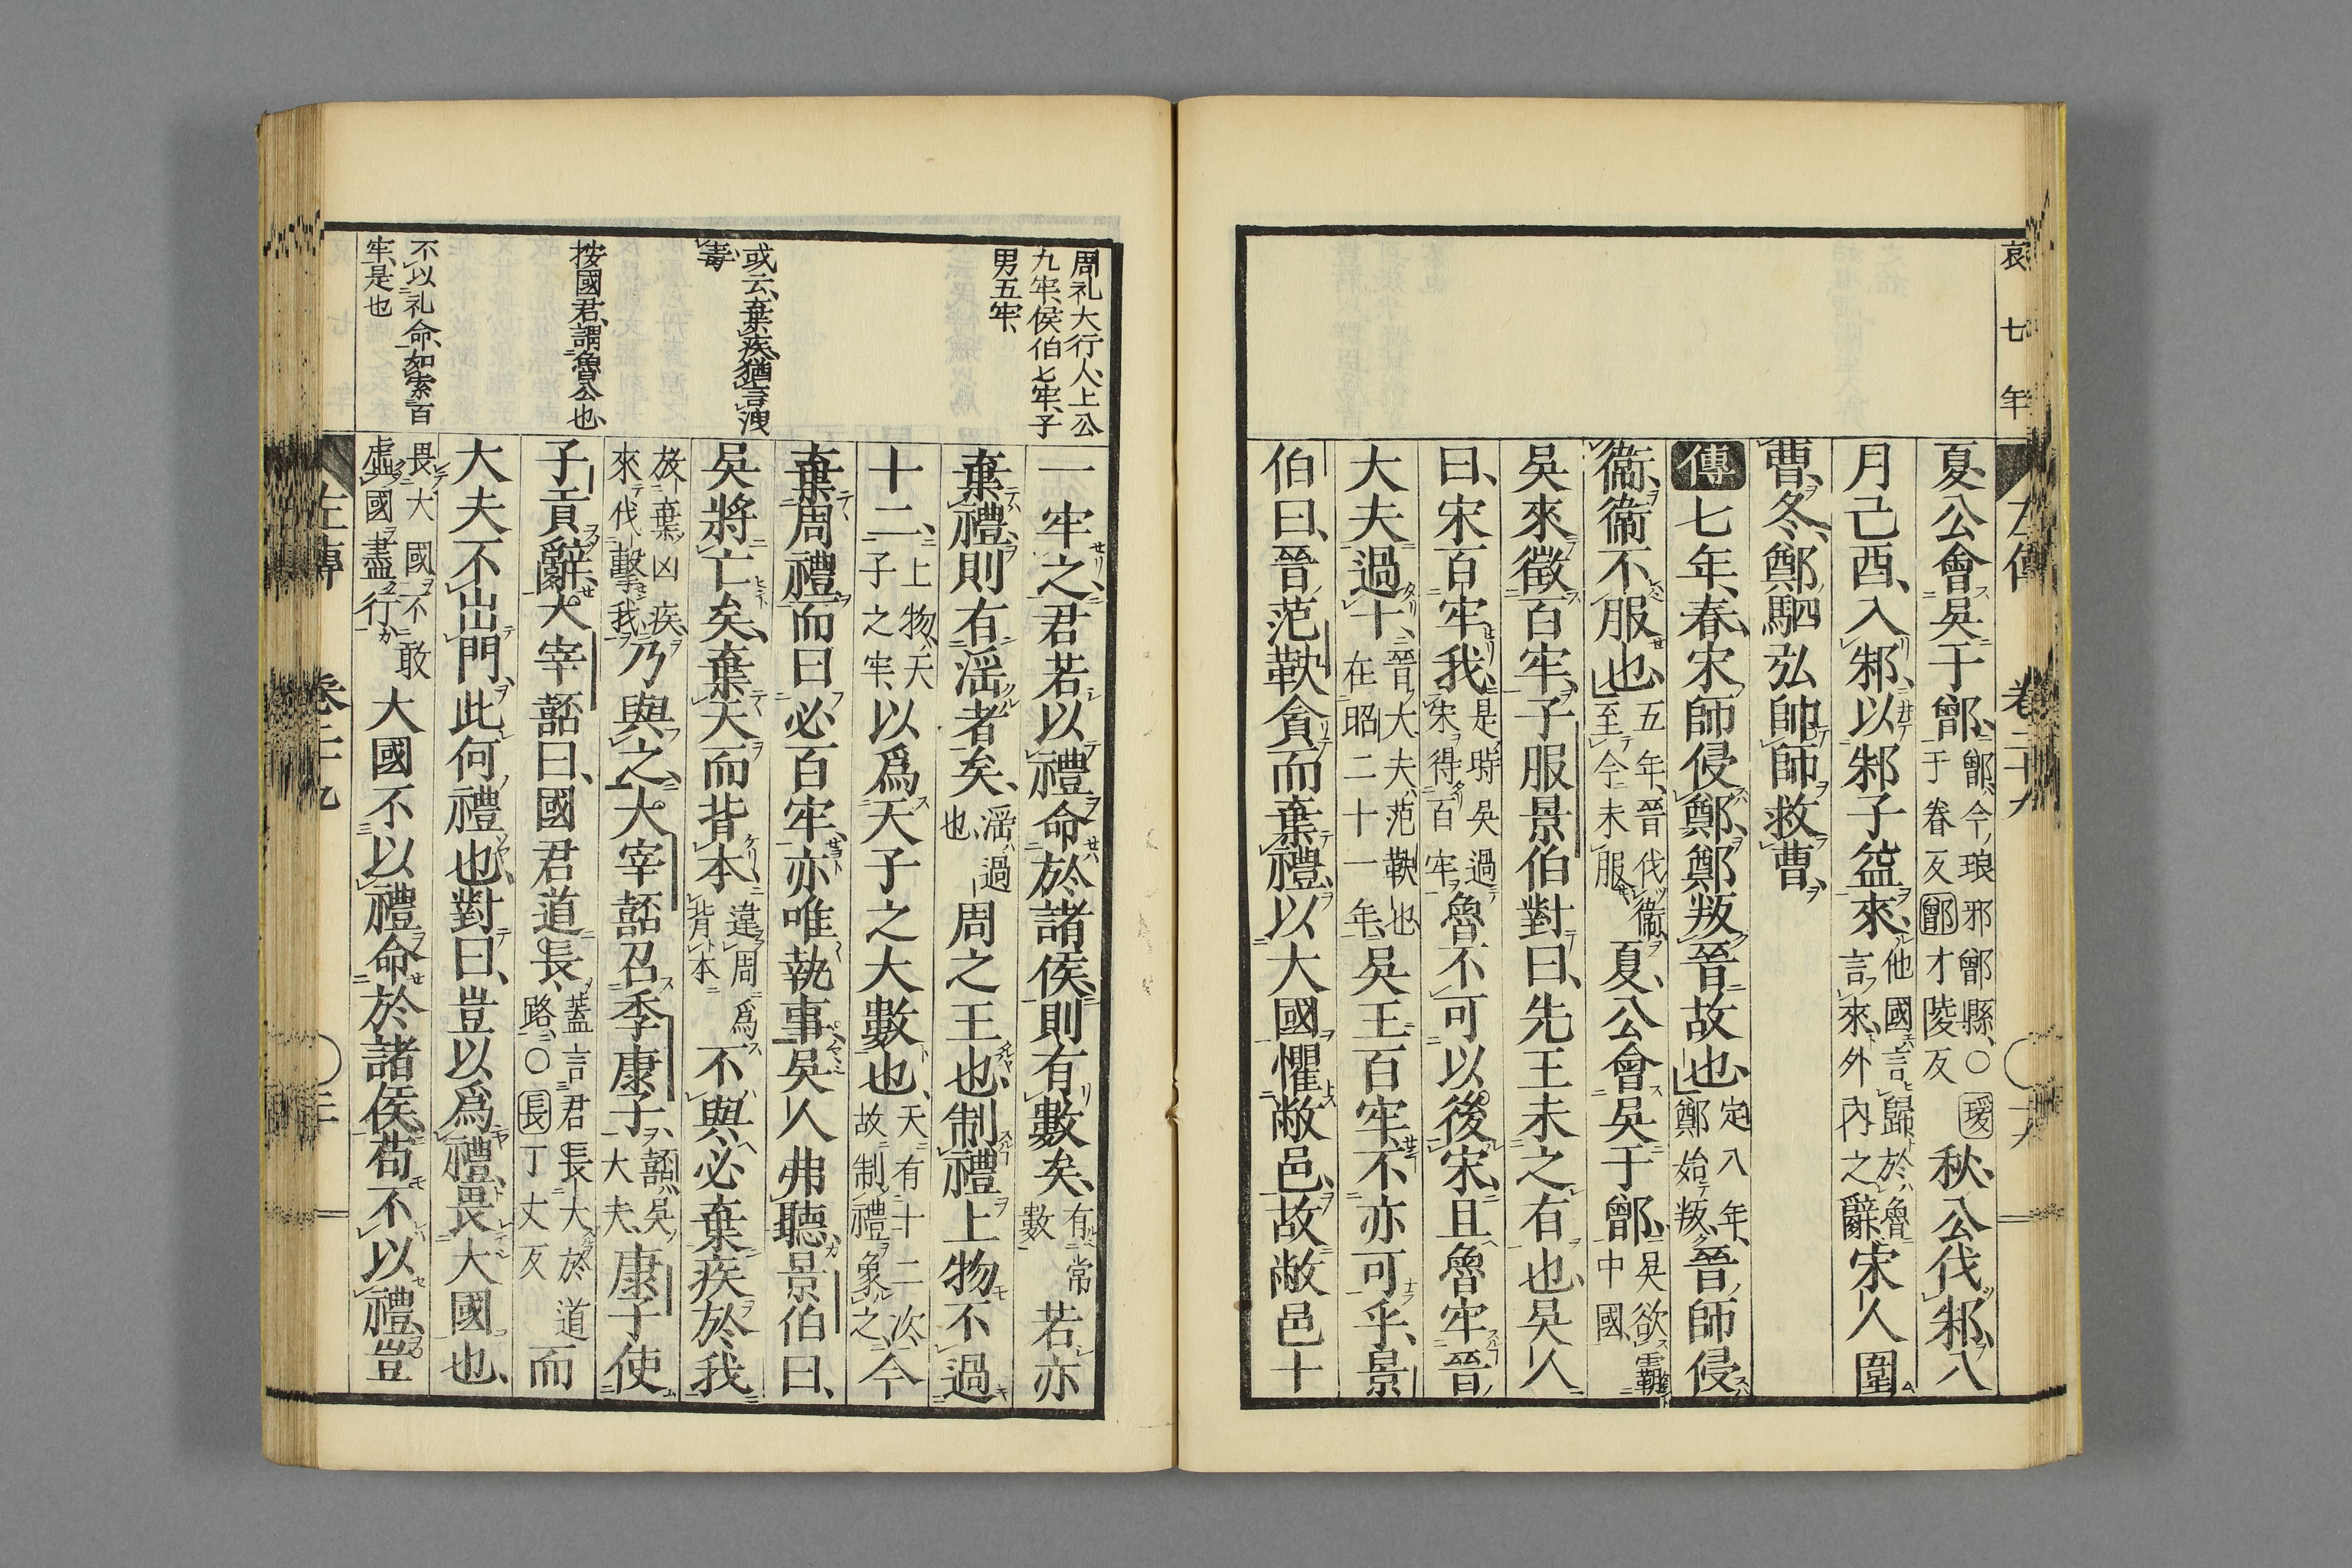 哀七年
左傳 卷二十九
夏公會吳于鄫鄫今琅邪鄫縣〇瑗于眷反鄫才陵反秋公伐邾八
月己酉入邾以邾子益來他國言歸於魯言來外內之辭宋人圍
曹冬鄭駟弘帥師救曹
傳七年春宋師侵鄭鄭叛晉故也定八年鄭始叛晉師侵
衞衞不服也五年晉伐衞至今未服夏公會吳于鄫吳欲霸中國
吳來徵百牢子服景伯對曰先王未之有也吳人
曰宋百牢我是時吳過宋得百牢魯不可以後宋且魯牢晉
大夫過十晉大夫范鞅也在昭二十一年吳王百牢不亦可乎景
伯曰晉范鞅貪而棄禮以大國懼敝邑故敝邑十
周礼大行人上公
九牢侯伯七牢子
男五牢
或云棄疾猶言洩
毒
按國君謂魯公也
不以礼命如索百
牢是也
一牢之君若以禮命於諸侯則有數矣有常數若亦
棄禮則有淫者矣淫過也周之王也制禮上物不過
十二上物天子之牢以爲天子之大數也天有十二次故制禮象之今
棄周禮而曰必百牢亦唯執事吳人弗聽景伯曰
吳將亡矣棄天而背本違周爲背本不與必棄疾於我
放棄凶疾來伐擊我乃與之大宰嚭召季康子嚭吳大夫康子使
子貢辭大宰嚭曰國君道長蓋言君長大於道路〇長丁丈反而
大夫不出門此何禮也對曰豈以爲禮畏大國也
畏大國不敢虛國盡行大國不以禮命於諸侯苟不以禮豈
左傳 卷二十九